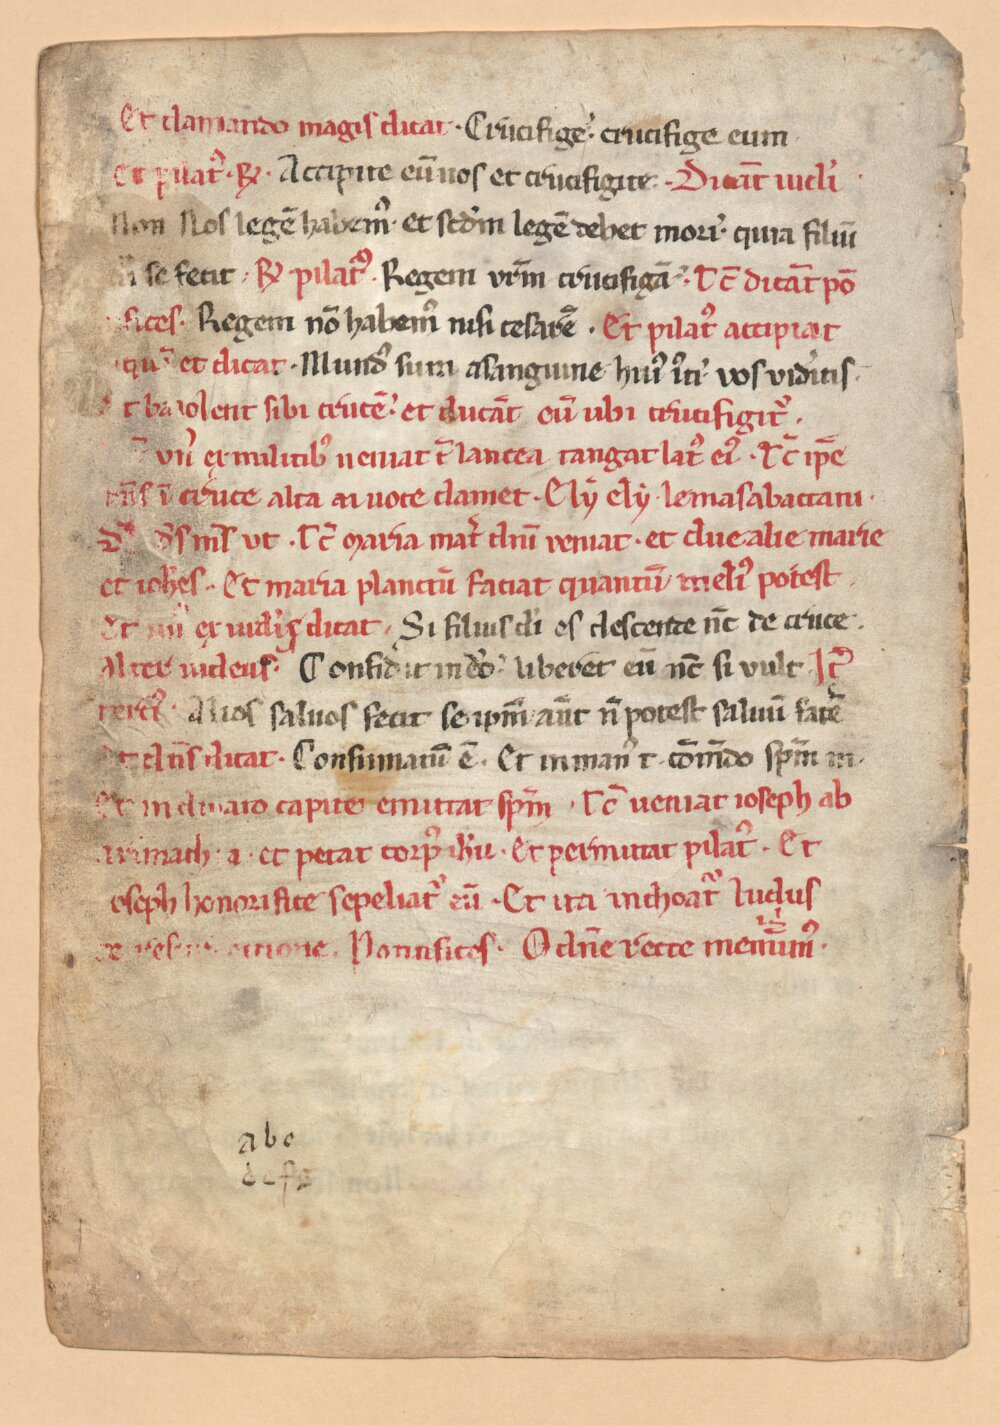 Et clamando magis dicat · Crucifige · crucifige eum
Et pilat᷒ · ℟ · Accipite eū uos et crucifigite · Dicāt iudi
Non Nos legē habem᷒ · et scdm legē debet mori · quia filiū
se fecit · ℟ pilat᷒ · Regem vr̄m crucifigā · Tc̄ dicāt pō
fices · Regem nō habem᷒ nisi cesarē · Et pilat᷒ accipiat
et dicat · Mund᷒ sum a sanguine hui᷒ vos videritis ·
t baiolent sibi crucē · et ducāt eū ubi crucifigit᷒ ·
vn᷒ ex militib᷒ ueniat c̄ lancea tangat lat᷒ ei᷒ · Tc̄ ip̄e
dn̄s ī cruce alta uoce clamet · Ely ely · lemasabactani ·
ds ms vt · Tc̄ maria mat̄ dn̄i veniat · et due alie marie
et ioh̄es · Et maria planctū faciat quantū meli᷒ potest
Et ex iudeis dicat · Si filius di es descende nc̄ de cruce ·
Alter iudeus · Confidit in dō · liberet eū nc̄ si vult It̄
terci᷒ · Alios saluos fecit se ipm̄ aūt n̄ potest saluū facē
Et dn̄s dicat · Consumatū ē · Et in man᷒ t · cōmdo spm̄ m ·
Et inclinato capite emittat spm̄ · Tc̄ ueniat ioseph ab
arimathia · et petat corp᷒ ih̄u · et permittat pilat᷒ · Et
oseph honorifice sepeliat᷒ eū · Et ita inchoat᷒ ludus
de resurectione · Pontifices · O dn̄e recte memīim᷒ ·
abc
def